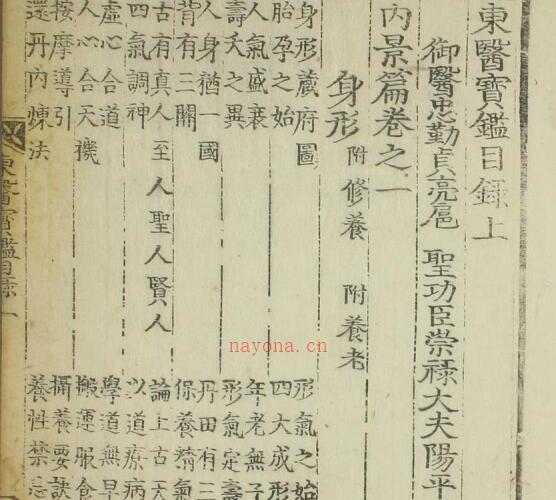 東醫寶鑑目錄上
御醫忠勤貞亮扈 聖功臣崇祿大夫陽平
內景篇卷之一
身形 附修養 附養老
身形藏府圖 形氣之始
胎孕之始 四大成形
人氣盛衰 年老無子
壽夭之異 形氣定壽
人身猶一國 丹田有三
背有三關 保養精氣
古有真人至人聖人賢人 論上古天
四氣調神 以道療病
虛心合道 學道無早
人心合天機 搬運服食
按摩導引 攝養要訣
還丹內煉法 養性禁忌
東醫寶鑑目錄一
nayona.cn